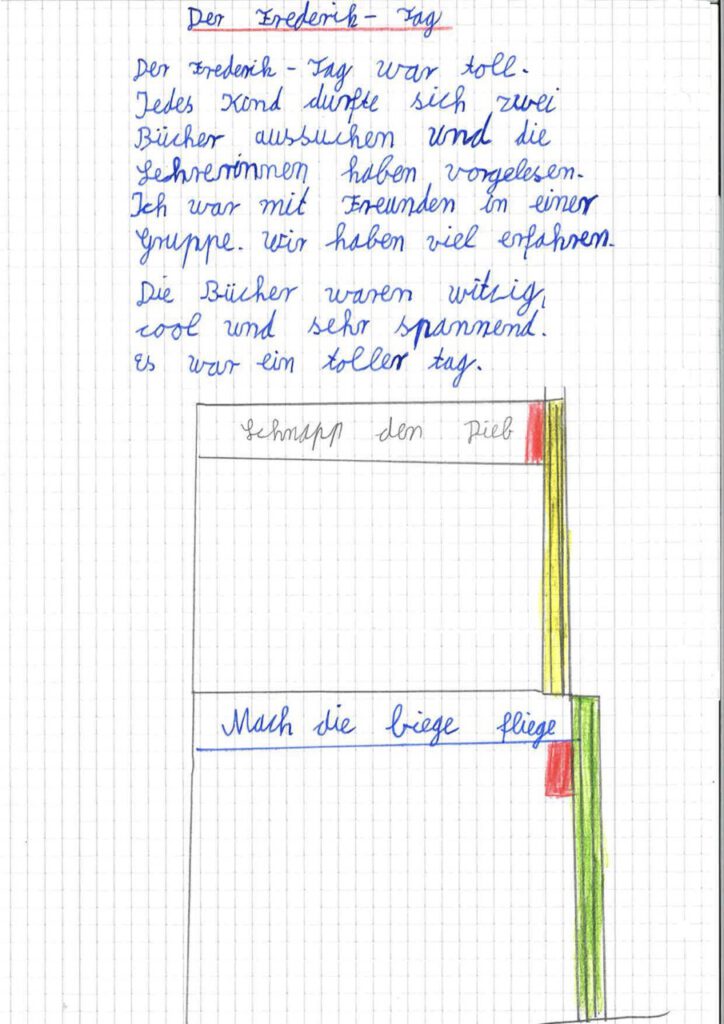 Der Frederik-Tag
Der Frederik-Tag war toll.
Jedes Kind durfte sich zwei
Bücher aussuchen und die
Lehrerinnen haben vorgelesen.
Ich war mit Freunden in einer
Gruppe. Wir haben viel erfahren.
Die Bücher waren witzig,
cool und sehr spannend.
Es war ein toller tag.
Schnapp den Dieb
Mach die biege fliege